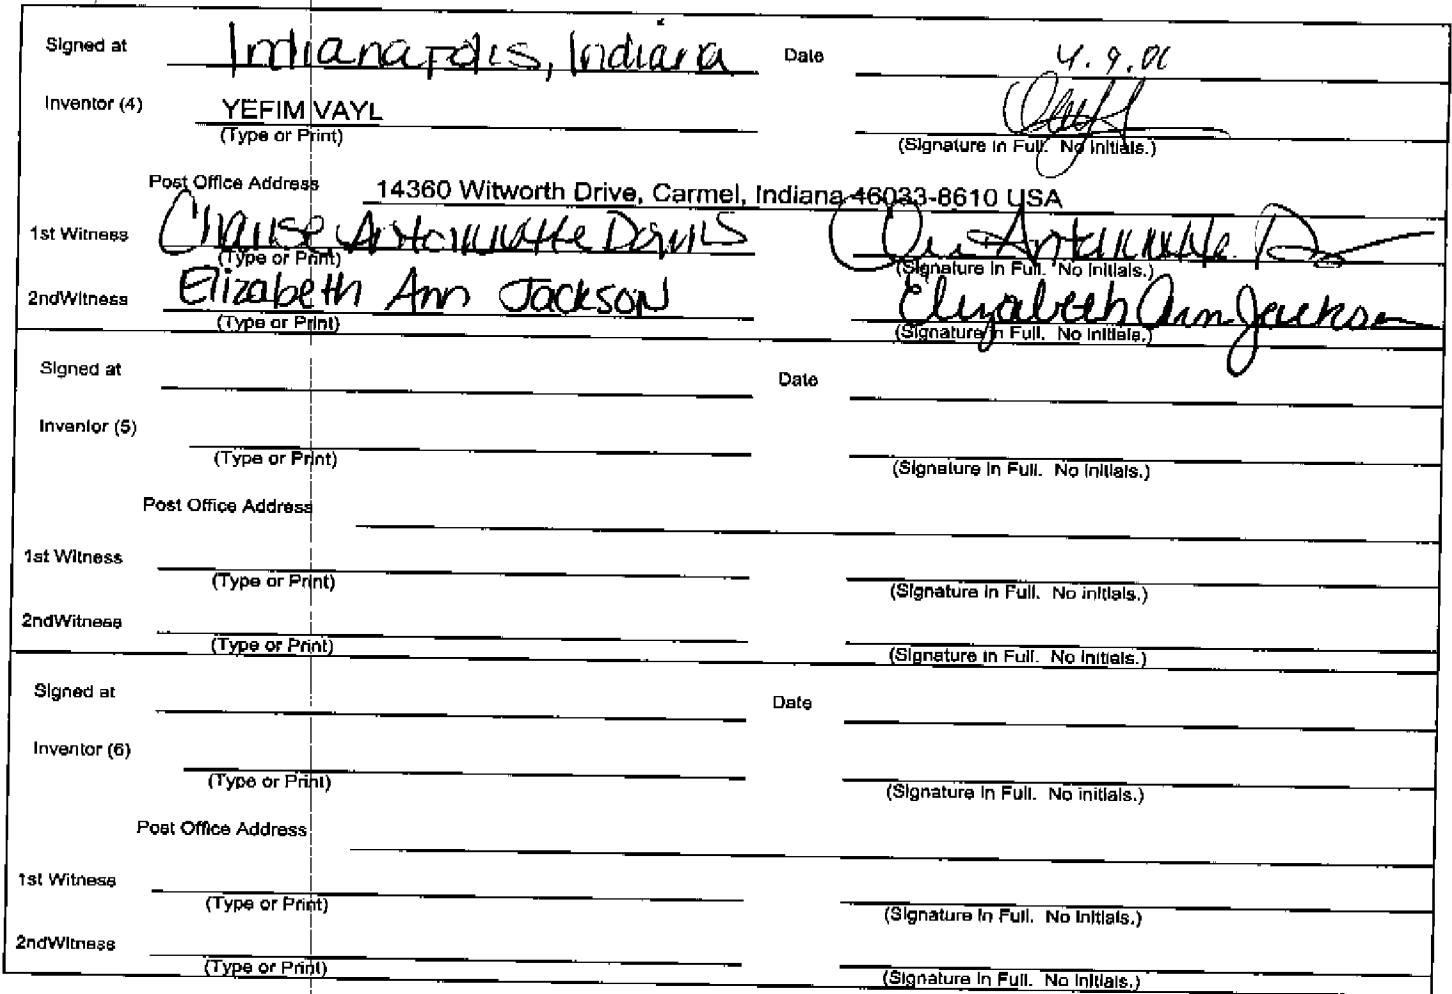 Signed at Indianapolis, Indiana Date 4.9.01
Inventor (4) YEFIM VAYL
(Type or Print) (Signature in Full. No Initials.)
Post Office Address 14360 Witworth Drive, Carmel, Indiana 46033-8610 USA
1st Witness Antoinette
(Type or Print) (Signature in Full. No Initials.)
2ndWitness Elizabeth Ann Jackson Elizabeth Ann Jackson
(Type or Print) (Signature in Full. No Initials.)
Signed at Date
Inventor (5)
(Type or Print) (Signature in Full. No Initials.)
Post Office Address
1st Witness
(Type or Print) (Signature in Full. No Initials.)
2ndWitness
(Type or Print) (Signature in Full. No Initials.)
Signed at Date
Inventor (6)
(Type or Print) (Signature in Full. No Initials.)
Post Office Address
1st Witness
(Type or Print) (Signature in Full. No Initials.)
2ndWitness
(Type or Print) (Signature in Full. No Initials.)